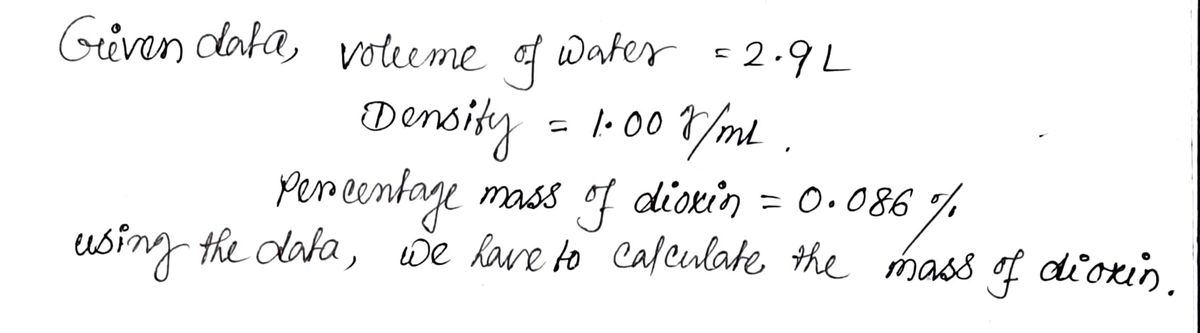 Given data, volume of water = 2.9 L
Density = 1.00 g/mL.
Percentage mass of dioxin = 0.086 %
using the data, we have to calculate the mass of dioxin.